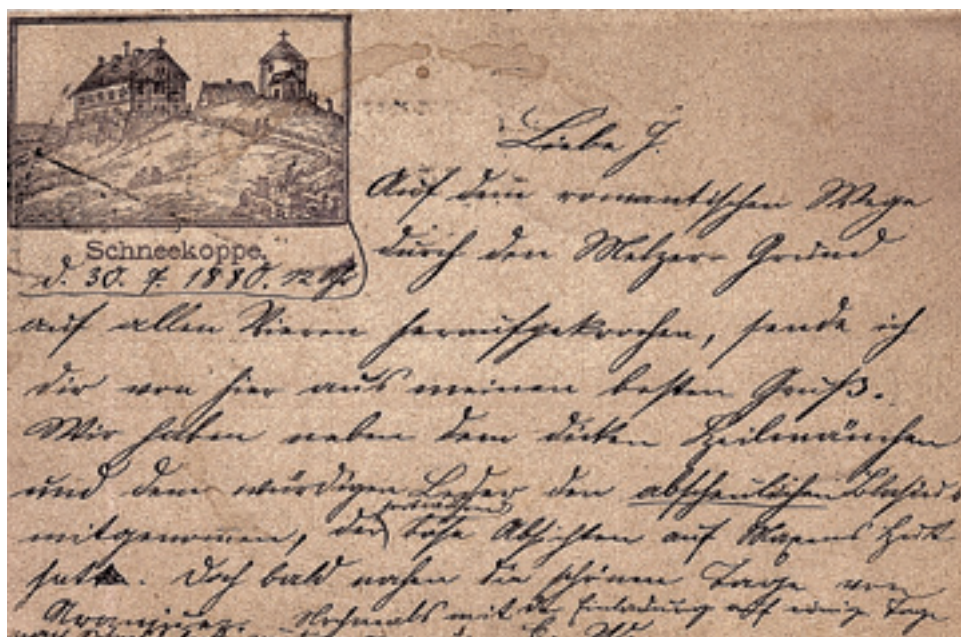 Schneekoppe.
d. 30. 7. 1880. 12 Uhr
Liebe J.
Auf dem romantischen Wege
durch den Melzer-Grund
auf allen Vieren heraufgekrochen, sende ich
dir von hier aus meinen besten Gruß.
Wir haben neben dem dicken
und dem würdigen den abscheulichen Blasius
mitgenommen, der böse Absichten auf Hut
hatte. Doch bald nahen die schönen Tage von
Aranjuez. Nochmals mit der Einladung auf einige Tage